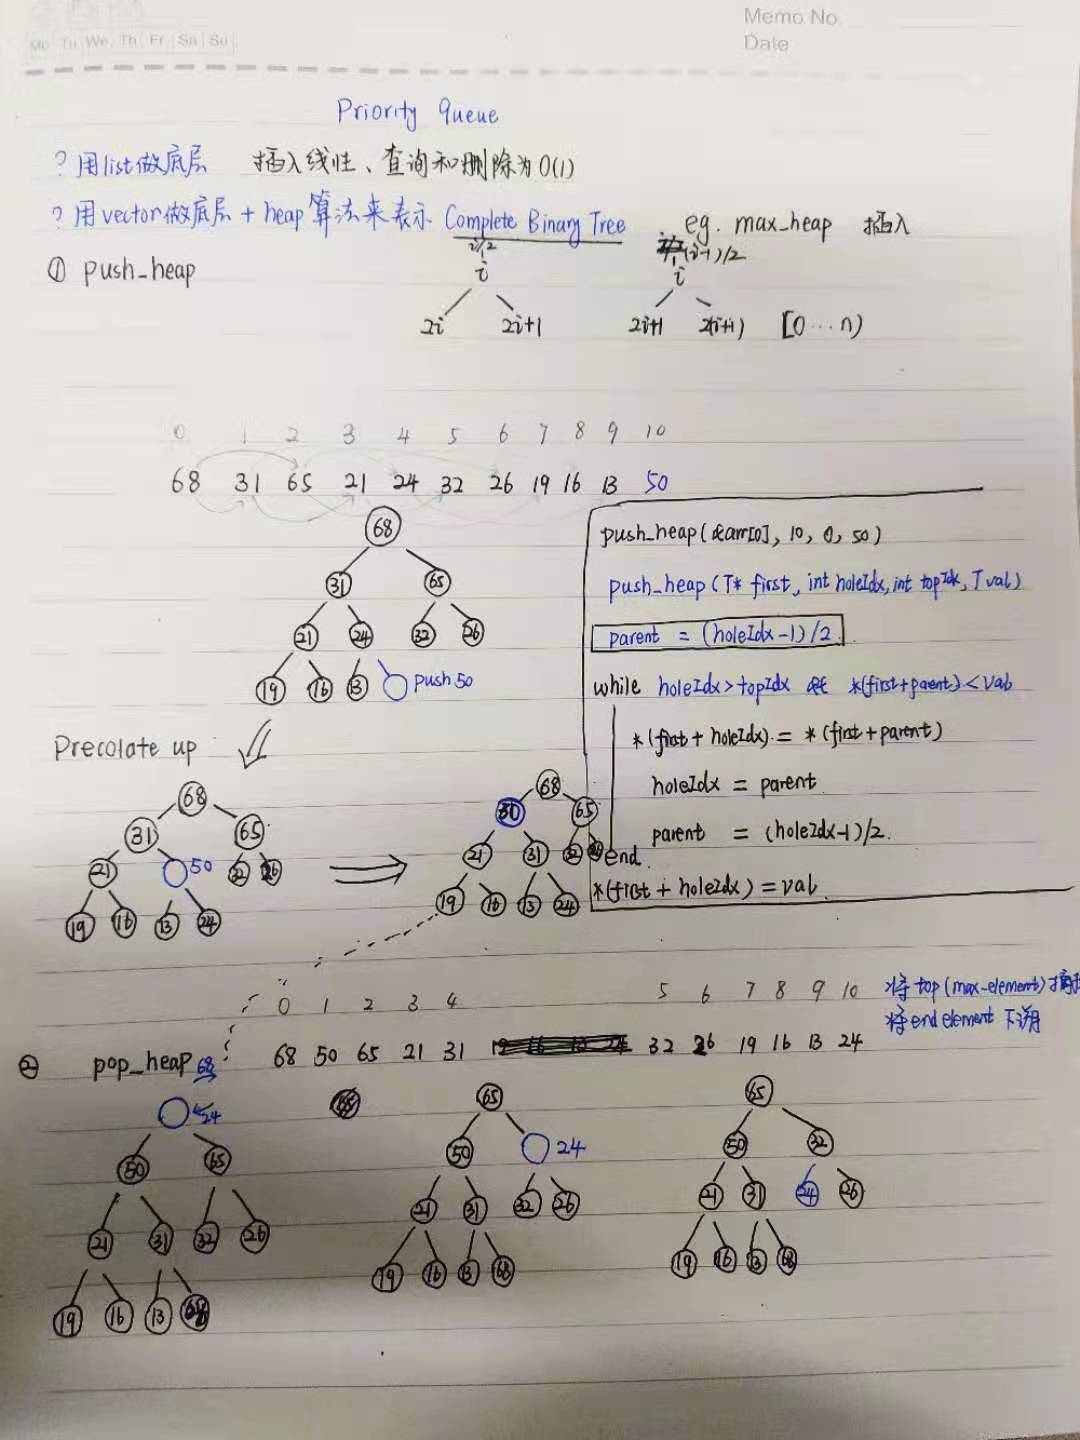 Memo No.
Date
Mo Tu We Th Fr Sa Su
Priority queue
? 用list做底层 插入线性、查询和删除为O(1)
? 用vector做底层 + heap算法来表示 Complete Binary Tree eg. max_heap 插入
① push_heap
i/2 (i-1)/2
i i
2i 2i+1 2i+1 2(i+1) [0...n)
0 1 2 3 4 5 6 7 8 9 10
68 31 65 21 24 32 26 19 16 13 50
68
31 65
21 24 32 26
19 16 13 push 50
push_heap(&arr[0], 10, 0, 50)
push_heap(T* first, int holeIdx, int topIdx, T val)
parent = (holeIdx-1)/2.
while holeIdx>topIdx && *(first+parent)<val
*(first + holeIdx) = *(first+parent)
holeIdx = parent
parent = (holeIdx-1)/2.
end.
*(first + holeIdx) = val
Precolate up
68
31 65
21 50 32 26
19 16 13 24
68
50 65
21 31 32 26
19 16 13 24
0 1 2 3 4 5 6 7 8 9 10
将top(max-element)
将end element 下溯
② pop_heap 68 68 50 65 21 31 32 26 19 16 13 24
24
50 65
21 31 32 26
19 16 13 68
65
50 24
21 31 32 26
19 16 13 68
65
50 32
21 31 24 26
19 16 13 68